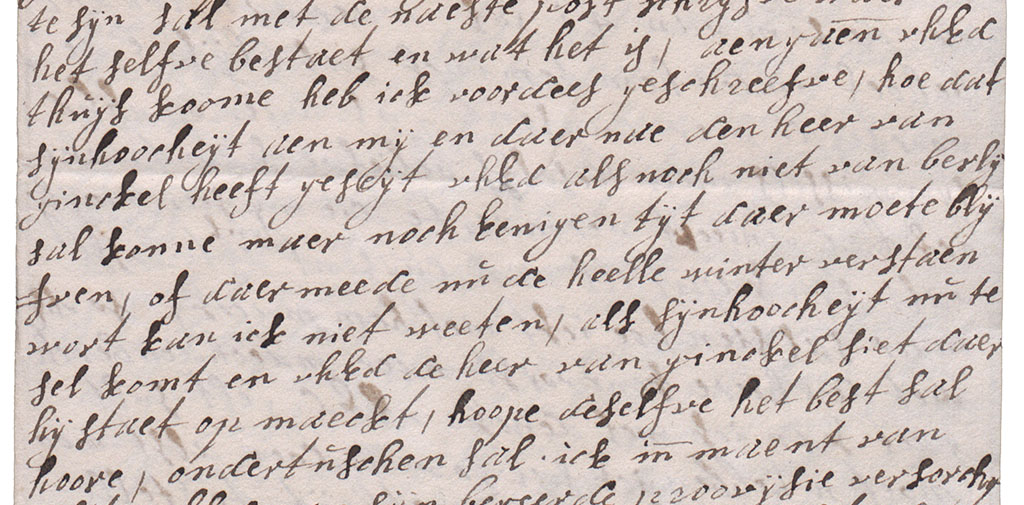 te sijn sal met de naeste post schrijfve
het selfve bestaet en wat het is, aengaen uhEd
thuijs koome heb ick voordees geschreefve, hoe dat
sijnhoocheijt aen mij en daer nae den heer van
ginckel heeft geseijt uhEd als noch niet van berlij
sal konne maer noch eenigen tijt daer moete blij
fven, of daermeede nu de heelle winter verstaen
wort kan ick niet weeten, als sijnhoocheijt nu te
sel komt en uhEd de heer van ginckel siet daer
bij staet op maeckt, hoope deselfve het best sal
hoore, ondertuschen sal ick in maent van
sijn begeerde provijsie versorch